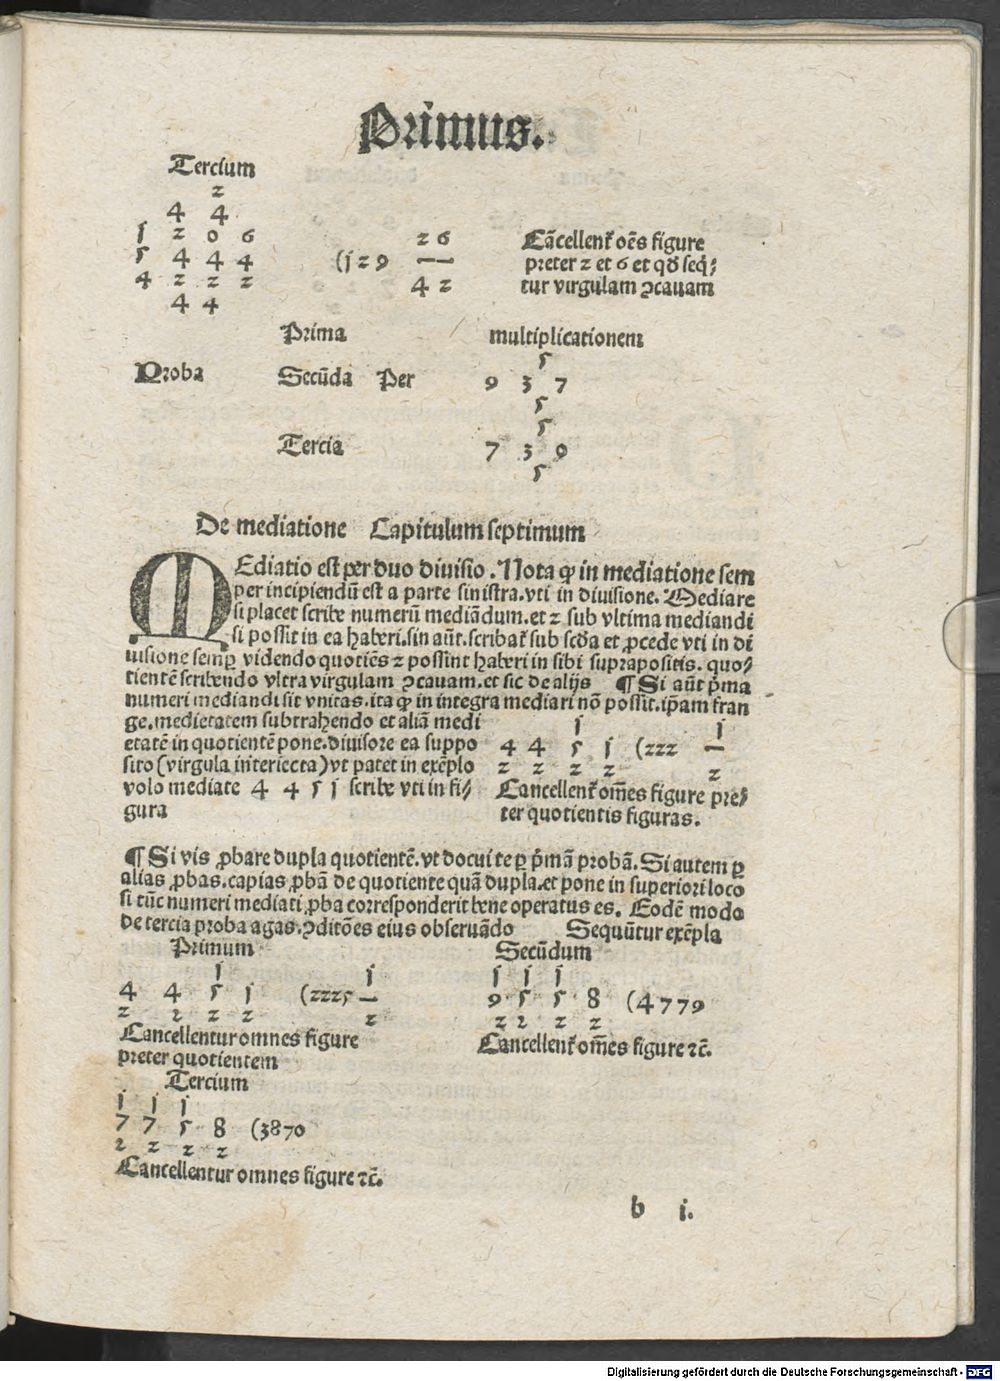 Primus.
Tercium
z
4 4
1 z 0 6
5 4 4 4
4 z z z
4 4
(j z 9
z 6
4 z
Cãcellent᷑ oẽs figure
preter z et 6 et qđ seq̃⸗
tur virgulam ꝯcauam
Prima multiplicationem
5
Proba Secũda Per 9 3 7
5
5
Tercia 7 3 9
5
De mediatione Capitulum septimum
MEdiatio est per duo diuisio. Nota ꝙ in mediatione sem
per incipiendũ est a parte sinistra. vti in diuisione. Mediare
si placet scribe numerũ mediãdum. et z sub vltima mediandi
si possit in ea haberi. sin aũt. scribat᷑ sub scđa et ꝓcede vti in di
uisione semꝑ videndo quotiẽs z possint haberi in sibi suprapositis. quo⸗
tientẽ scribendo vltra virgulam ꝯcauam. et sic de alijs ¶ Si aũt p̃ma
numeri mediandi sit vnitas. ita ꝙ in integra mediari nõ possit. ip̃am fran
ge. medietatem subtrahendo et aliã medi
etatẽ in quotientẽ pone. diuisore ea suppo
sito (virgula interiecta) vt patet in exẽplo
volo mediate 4 4 5 j scribe vti in fi⸗
gura
j j
4 4 5 j (zzz —
z z z z z
Cancellent᷑ om̃es figure pre⸗
ter quotientis figuras.
¶ Si vis ꝓbare dupla quotientẽ. vt docui te ꝑ p̃mã probã. Si autem ꝑ
alias ꝓbas. capias ꝓbã de quotiente quã dupla. et pone in superiori loco
si tũc numeri mediati ꝓba corresponderit bene operatus es. Eodẽ modo
de tercia proba agas. ꝯditões eius obseruãdo Sequũtur exẽpla
Primum
j j
4 4 5 j (zzz5 —
z z z z z
Cancellentur omnes figure
preter quotientem
Secũdum
j j j
9 5 5 8 (4779
z z z z
Cancellent᷑ om̃es figure ⁊c̃.
Tercium
j j j
7 7 5 8 (3870
z z z z
Cancellentur omnes figure ⁊c̃.
b i.
Digitalisierung gefördert durch die Deutsche Forschungsgemeinschaft - DFG